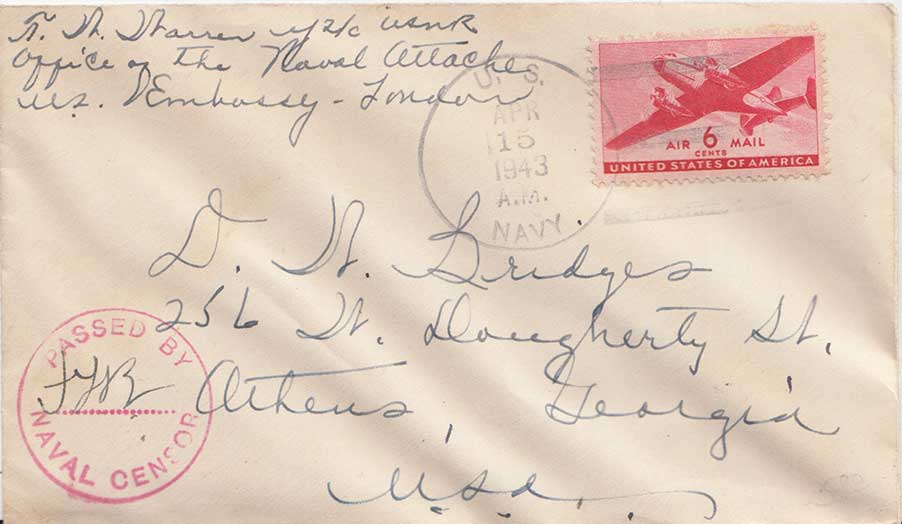 T. W. Warren Y2/c USNR
Office of the Naval Attache
U.S. Embassy - London
U. S.
APR
15
1943
A.M.
NAVY
AIR 6 MAIL
CENTS
UNITED STATES OF AMERICA
D. W. Bridges
256 W. Dougherty St.
Athens, Georgia
U.S.A.
PASSED BY
NAVAL CENSOR